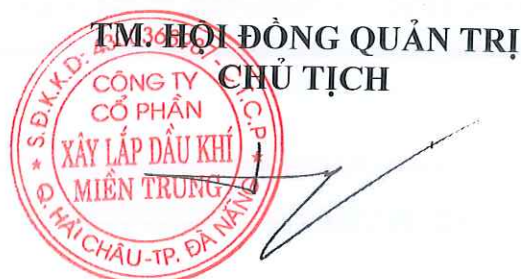 TM. HỘI ĐỒNG QUẢN TRỊ
CHỦ TỊCH
S.Đ.K.K.D:
C.T.C.P
CÔNG TY
CỔ PHẦN
XÂY LẮP DẦU KHÍ
MIỀN TRUNG
Q. HẢI CHÂU-TP. ĐÀ NẴNG